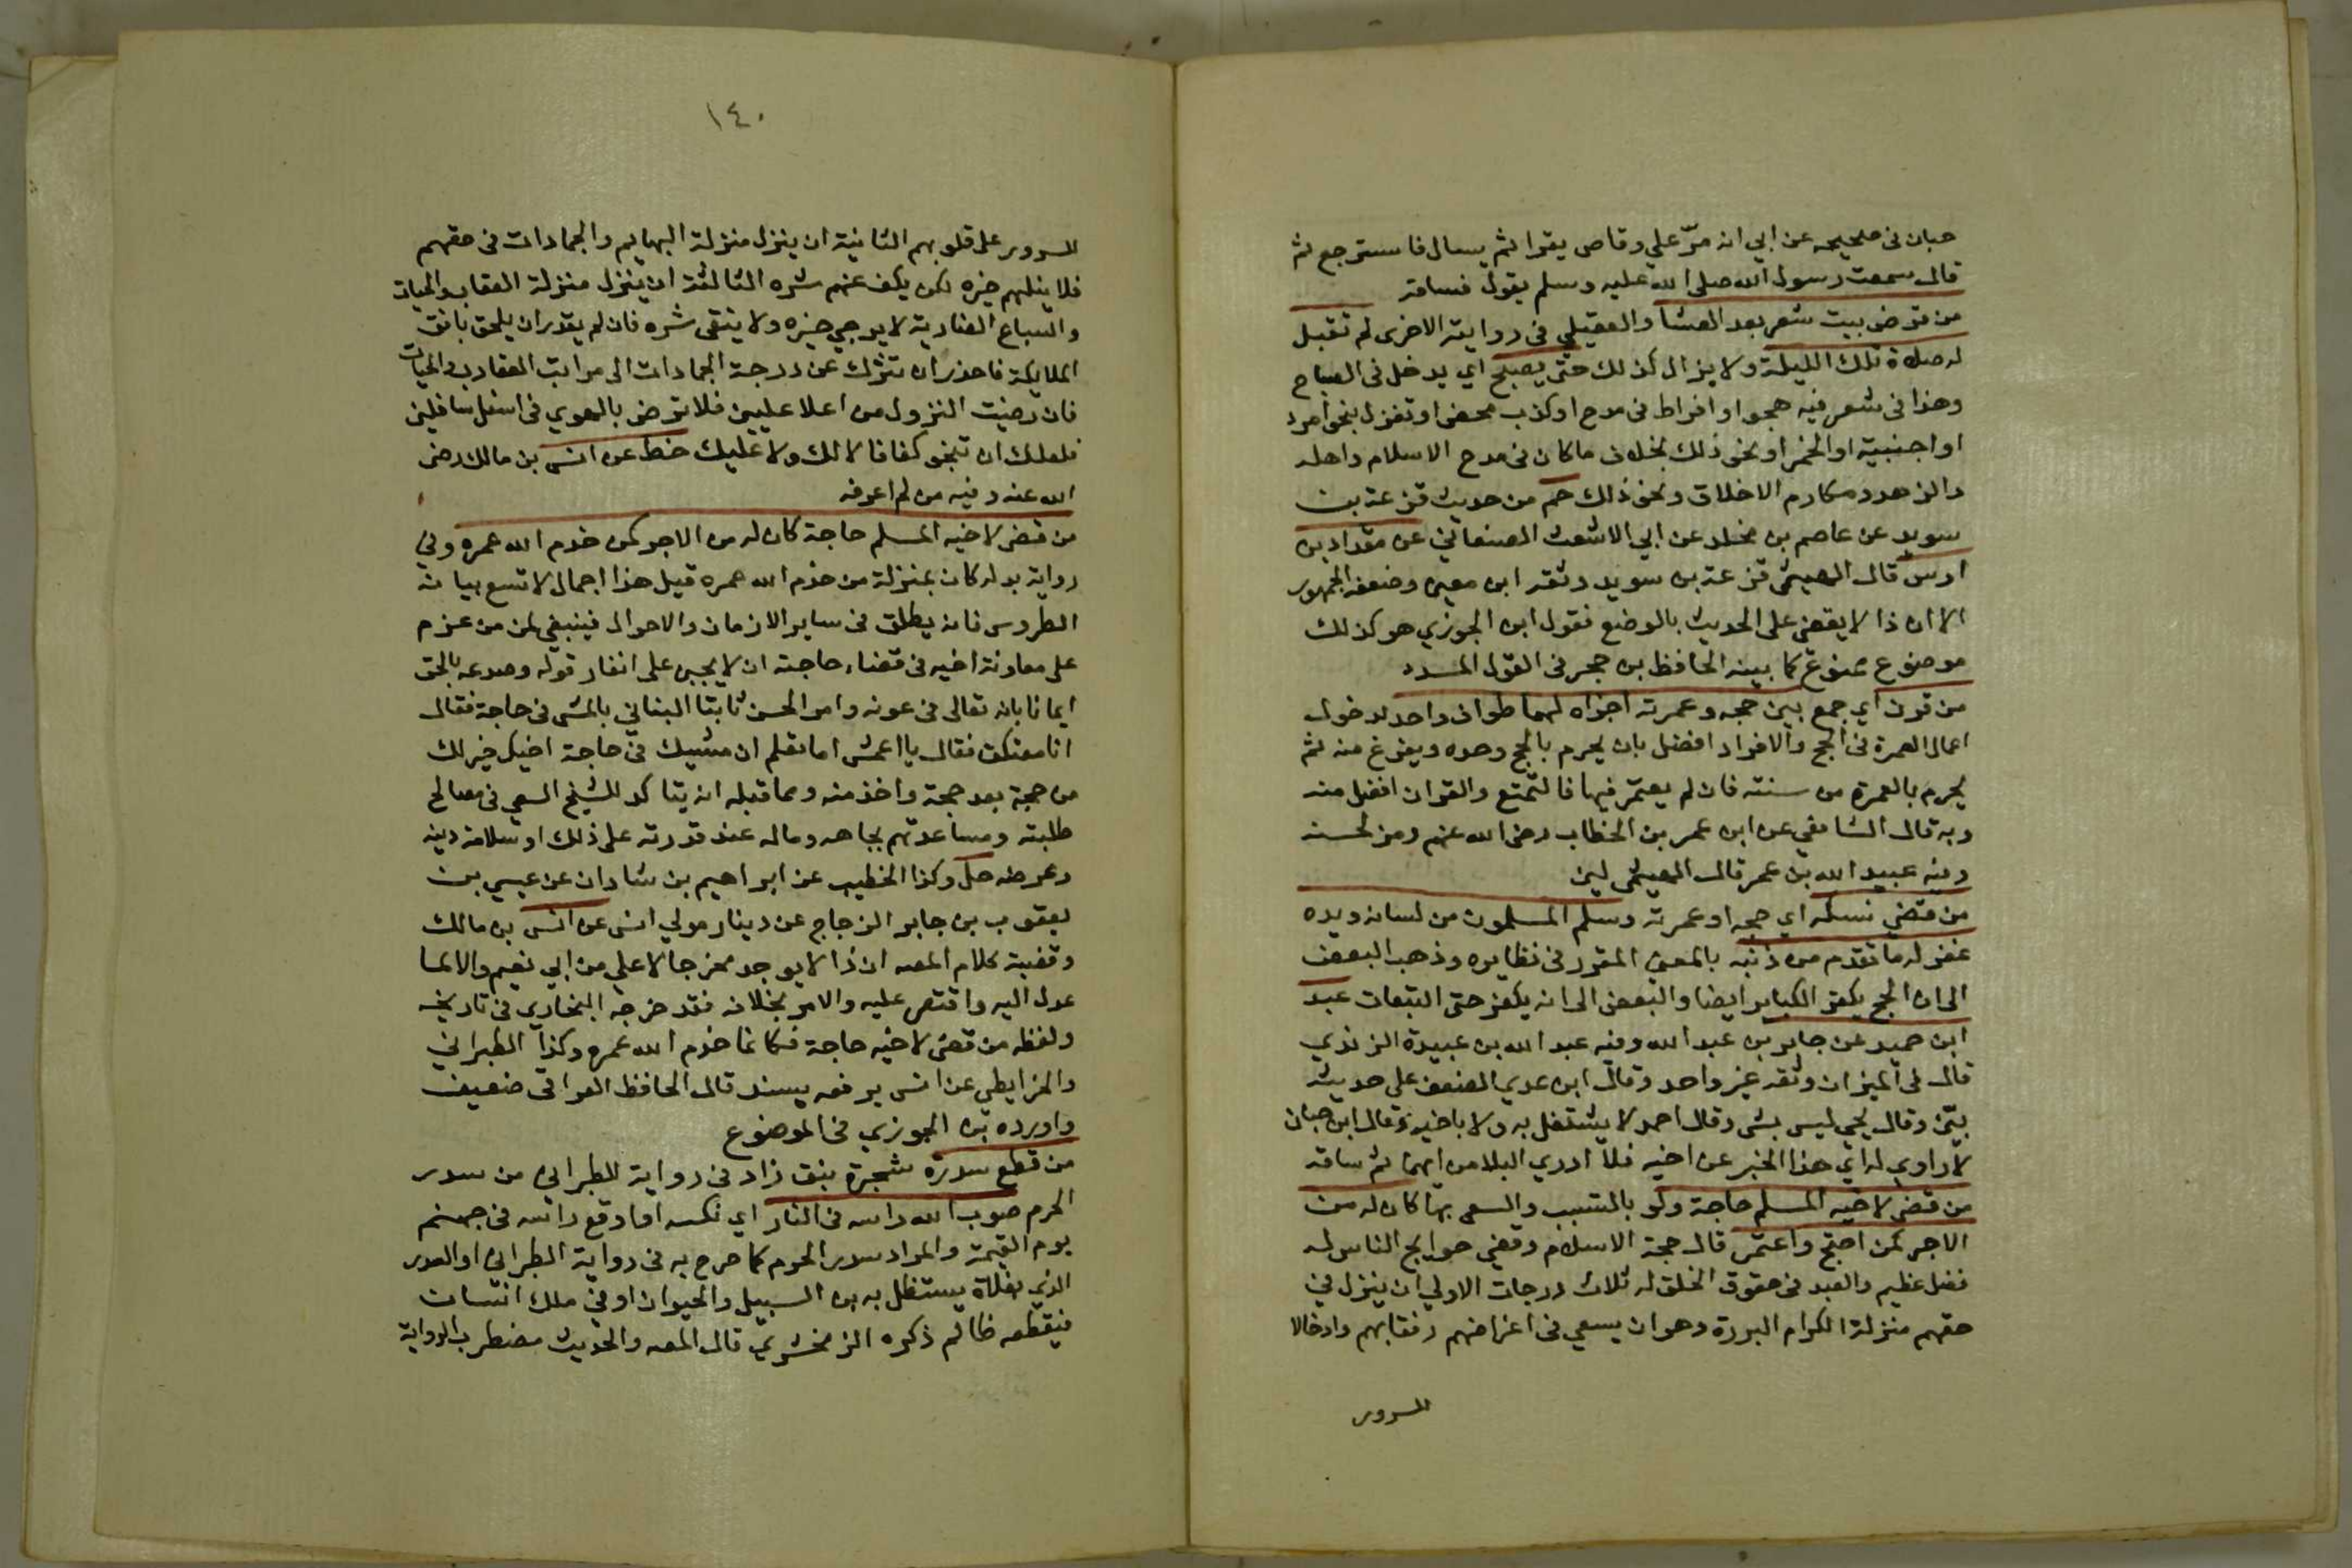 حبان في صحيحه عن ابي انه مرّ علي وقاص يقرا ثم يسال فاسترجع ثم
قال سمعت رسول الله صلى الله عليه وسلم يقول فساقه
من قرض بيت شعر بعد العشا والعقيلي في رواية الاخرى لم تقبل
له صلاة تلك الليلة ولا يزال كذلك حتى يصبح اي يدخل في الصباح
وهذا في شعر فيه هجوا وافراط في مدح او كذب محض او تغزل بنحو امرد
او اجنبية او الخمر او نحو ذلك بخلاف ما كان في مدح الاسلام واهله
والزهد ومكارم الاخلاق ونحو ذلك حم من حديث قزعة بن
سويد عن عاصم بن مخلد عن ابي الاشعث الصنعاني عن مقداد بن
اوس قال الهيثمي قزعة بن سويد وثقه ابن معين وضعفه الجمهور
الا ان ذا لا يقضي على الحديث بالوضع فقول ابن الجوزي هو كذلك
موضوع ممنوع كما بينه الحافظ بن حجر في القول المسدد
من قرن اي جمع بين حجه وعمرته اجزاه لهما طواف واحد لدخول
اعمال العمرة في الحج والافراد افضل بان يحرم بالحج وحده ويفرغ منه ثم
يحرم بالعمرة من سنته فان لم يعتمر فيها فالتمتع والقران افضل منه
وبه قال الشافعي عن ابن عمر بن الخطاب رضى الله عنهم ورمز لحسنه
وفيه عبيد الله بن عمر قال الهيثمي لين
من قضي نسكه اي حجه او عمرته وسلم المسلمون من لسانه ويده
غفر له ما تقدم من ذنبه بالمعنى المقرر في نظايره وذهب البعض
الى ان الحج يكفر الكباير ايضا والبعض الى انه يكفر حتى التبعات عبد
ابن حميد عن جابر بن عبد الله وفيه عبد الله بن عبيدة الزندي
قال في الميزان وثقه غير واحد وقال ابن عدي الضعف على حديثه
بيّن وقال يحيي ليس بشي وقال احمد لا يشتغل به ولا باخيه وقال ابن حبان
لا راوي له اي هذا الخبر عن اخيه فلا ادري البلا من ايهما ثم ساقه
من قضي لاخيه المسلم حاجة ولو بالتسبب والسعي بها كان له من
الاجر كمن احتج واعتمر قال حجة الاسلام وقضي حوايج الناس له
فضل عظيم والعبد في حقوق الخلق له ثلاث درجات الاولي ان ينزل في
حقهم منزلة الكرام البررة وهو ان يسعي في اغراضهم رفقا بهم وادخالا
للسرور
١٤٠
للسرور على قلوبهم الثانية ان ينزل منزلة البهايم والجمادات في حقهم
فلا ينلهم خيره لكن يكف عنهم شره الثالثة ان ينزل منزلة العقارب والحيات
والسباع الضارية لا يرجي خيره ولا يتقى شره فان لم يقدر ان يلحق بافق
الملايكة فاحذر ان تنزل عن درجة الجمادات الى مراتب العقارب والحيات
فان رضيت النزول من اعلا عليين فلا ترض بالهوي في اسفل سافلين
فلعلك ان تنجو كفافا لا لك ولا عليك خط عن انس بن مالك رضى
الله عنه وفيه من لم اعرفه
من قضى لاخيه المسلم حاجة كان له من الاجر كمن خدم الله عمره وفي
رواية بدله كان بمنزلة من خدم الله عمره قيل هذا اجمال لا تسع بيانه
الطروس فانه يطلق في ساير الازمان والاحوال فينبغي لمن من عزم
على معاونة اخيه في قضاء حاجته ان لا يجبن على انفاذ قوله وصدعه بالحق
ايمانا بانه تعالى في عونه وامر الحسن ثابتا البناني بالمشي في حاجة فقال
انا معتكف فقال يا اعمش اما تعلم ان مشيك في حاجة اخيك خير لك
من حجة بعد حجة واخذ منه ومما قبله انه يتاكد للشيخ السعي في مصالح
طلبته ومساعدتهم بجاهه وماله عند قدرته على ذلك وسلامة دينه
وعرضه حل وكذا الخطيب عن ابراهيم بن شادان عن عيسي بن
يعقوب بن جابر الزجاج عن دينار مولي انس عن انس بن مالك
وقضية كلام المصه ان ذا لا يوجد مخرجا لاعلي من ابي نعيم والا لما
عدل اليه واقتصر عليه والامر بخلافه فقد خرجه البخاري في تاريخه
ولفظه من قضى لاخيه حاجة فكانما خدم الله عمره وكذا الطبراني
والخرايطي عن انس يرفعه بسند قال الحافظ العراقي ضعيف
واورده بن الجوزي في الموضوع
من قطع سدرة شجرة نبق زاد في رواية للطبراني من سدر
الحرم صوب الله راسه في النار اي نكسه او اوقع راسه في جهنم
يوم القيمة والمراد سدر الحرم كما صرح به في رواية الطبراني او السدر
الذي بفلاة يستظل به بن السبيل والحيوان او في ملك انسان
فيقطعه ظالم ذكره الزمخشري قال المصه والحديث مضطرب الرواية